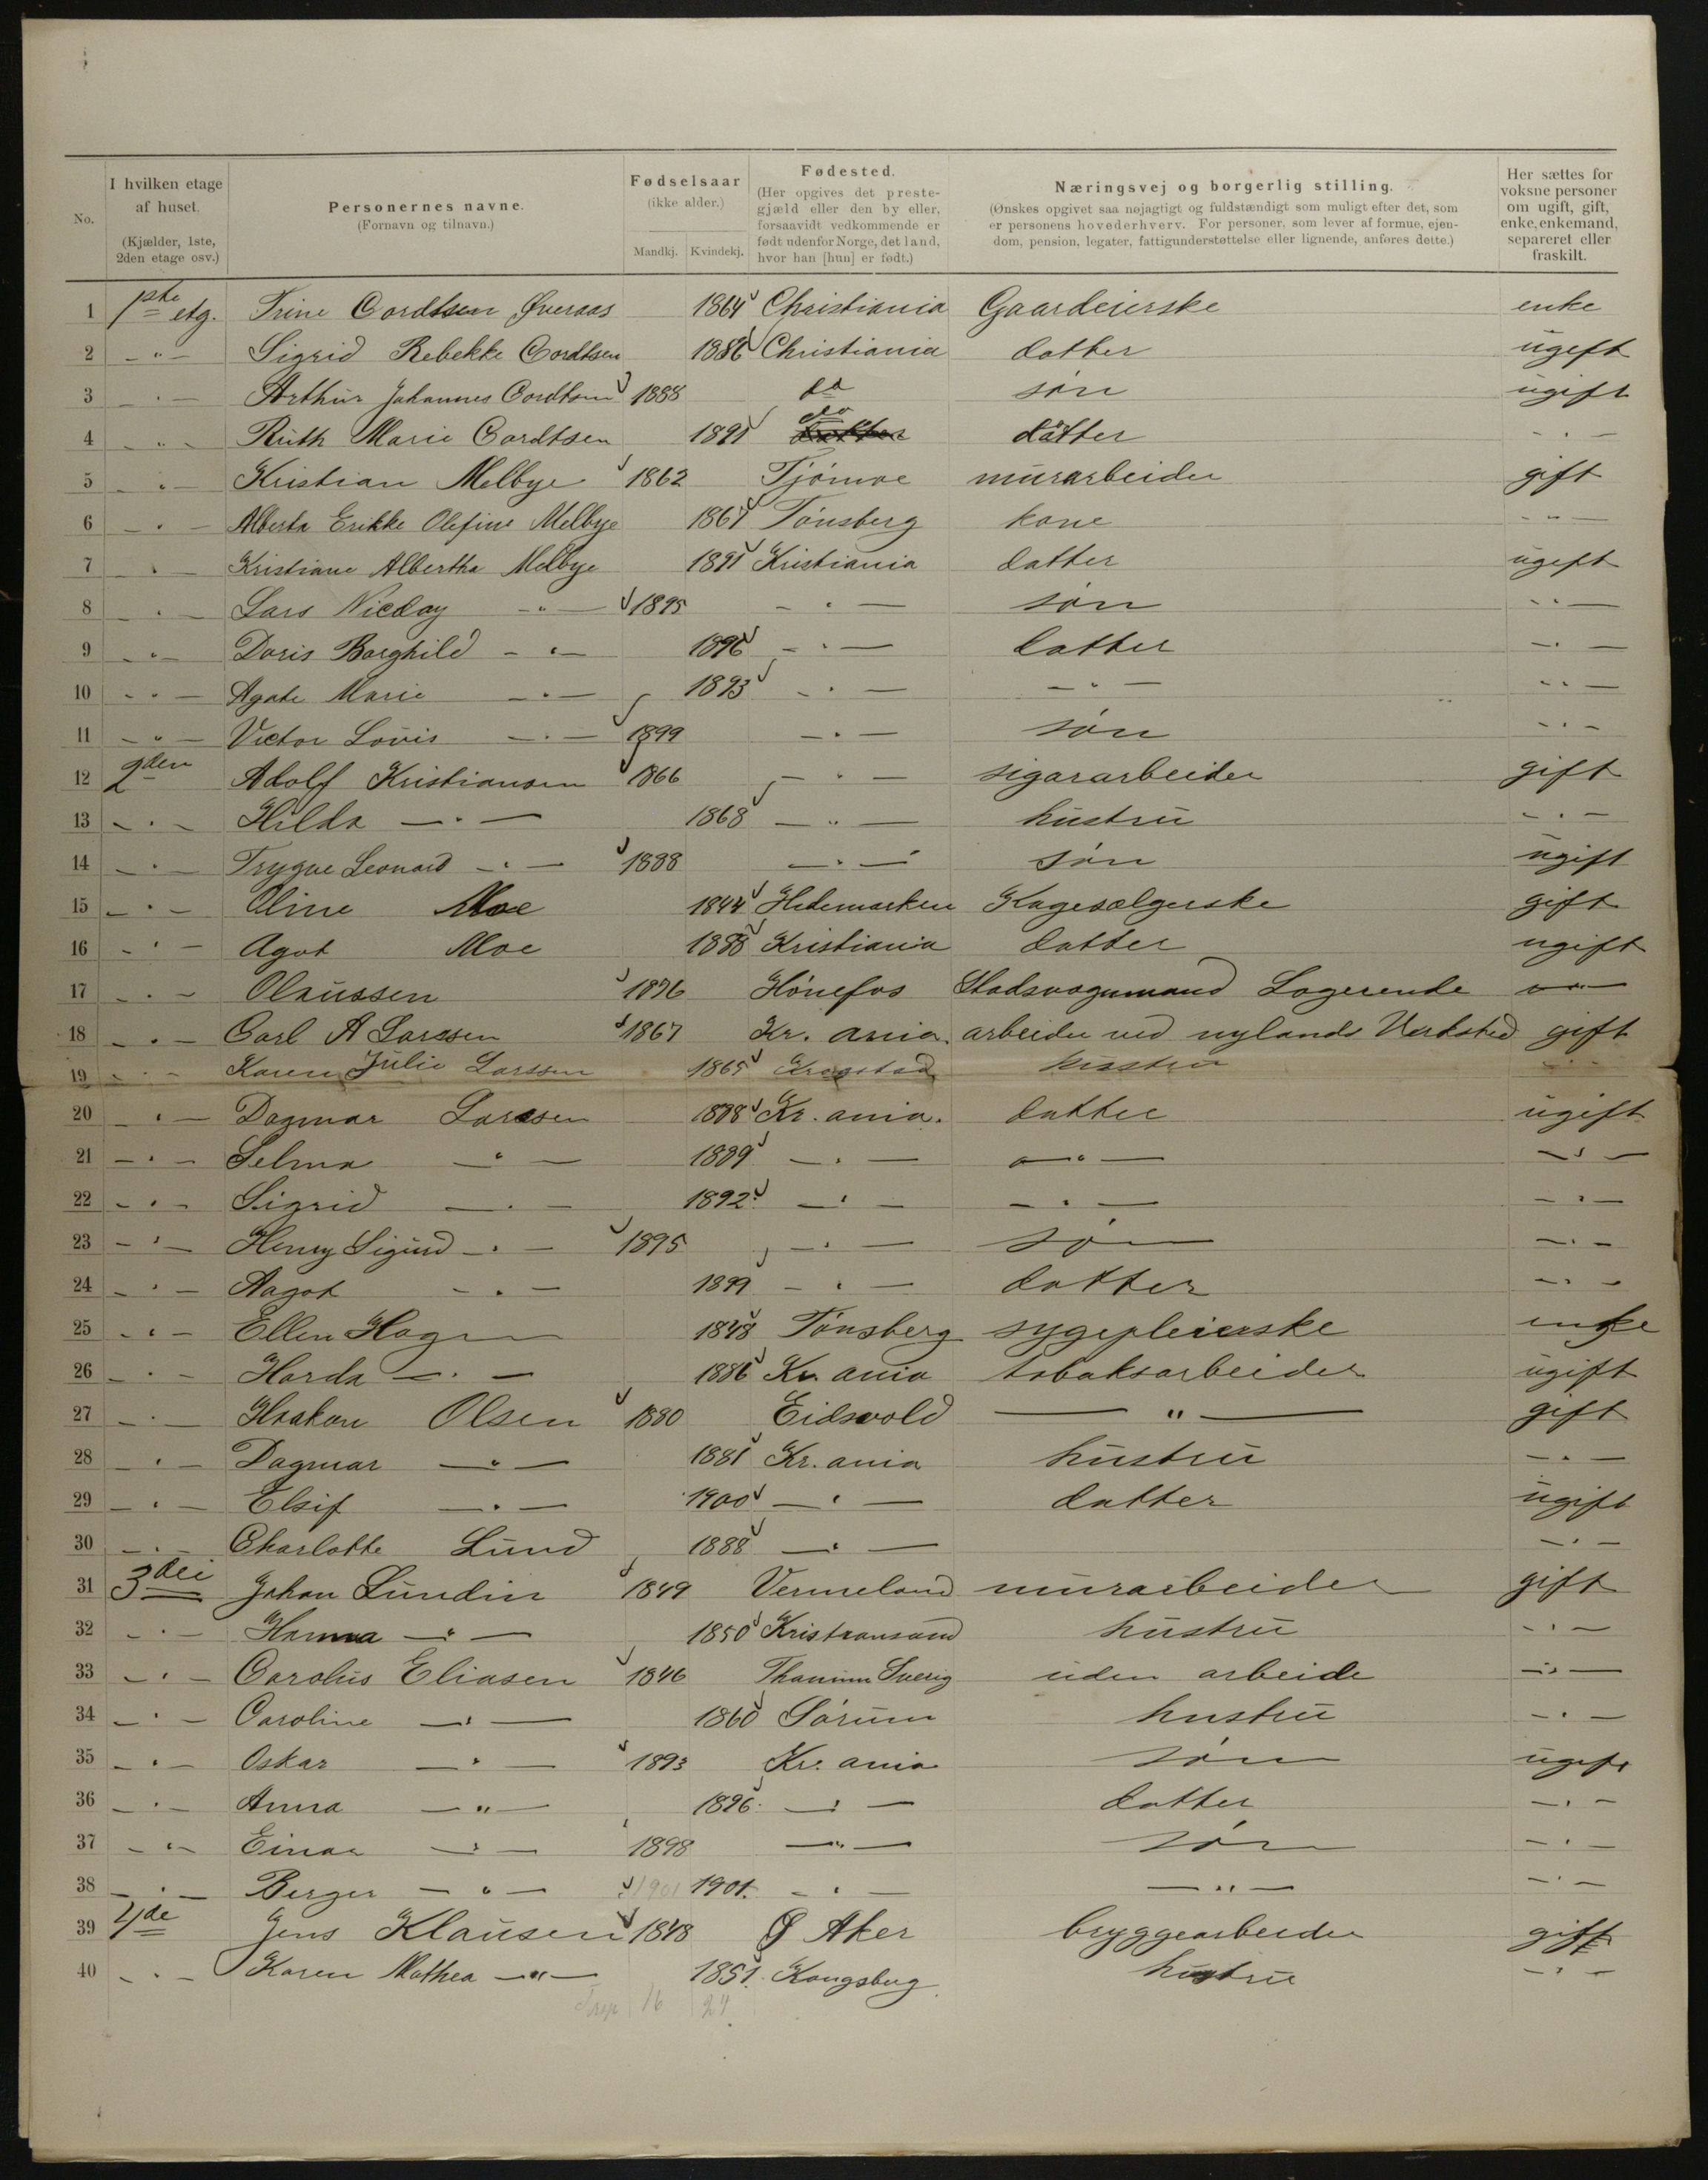 No.
I hvilken etage af huset. (Kjælder, 1ste, 2den etage osv.)
Personernes navne. (Fornavn og tilnavn.)
Fødselsaar (ikke alder.) Mandkj. Kvindekj.
Fødested. (Her opgives det prestegjæld eller den by eller, forsaavidt vedkommende er født udenfor Norge, det land, hvor han [hun] er født.)
Næringsvej og borgerlig stilling. (Ønskes opgivet saa nøjagtigt og fuldstændigt som muligt efter det, som er personens hovederhverv. For personer, som lever af formue, ejendom, pension, legater, fattigunderstøttelse eller lignende, anføres dette.)
Her sættes for voksne personer om ugift, gift, enke, enkemand, separeret eller fraskilt.
1 1ste etg. Trine Cordtsen Øveraas 1864 Christiania Gaardeierske enke
2 -"- Sigrid Rebekke Cordtsen 1886 Christiania datter ugift
3 -"- Arthur Johannes Cordtsen 1888 do søn ugift
4 -"- Ruth Marie Cordtsen 1891 do datter -"-
5 -"- Kristian Melbye 1862 Tjømoe murarbeider gift
6 -"- Alberta Erikke Olefine Melbye 1867 Tønsberg kone -"-
7 -"- Kristiane Albertha Melbye 1891 Kristiania datter ugift
8 -"- Lars Nicolay -"- 1895 -"- søn -"-
9 -"- Doris Borghild -"- 1896 -"- datter -"-
10 -"- Agate Marie -"- 1893 -"- -"- -"-
11 -"- Victor Louis -"- 1899 -"- søn -"-
12 2den Adolf Kristiansen 1866 -"- sigararbeider gift
13 -"- Hilda -"- 1868 -"- hustru -"-
14 -"- Trygve Leonard -"- 1888 -"- søn ugift
15 -"- Oline Moe 1844 Hedemarken Kagesælgerske gift
16 -"- Agot Moe 1888 Kristiania datter ugift
17 -"- Olaussen 1876 Hønefos Stadsvognmand Logerende -"-
18 -"- Carl A Larssen 1867 Kr. ania. arbeider ved nylands Verksted gift
19 -"- Karen Julie Larssen 1865 Kragstad hustru -"-
20 -"- Dagmar Larssen 1888 Kr. ania. datter ugift
21 -"- Selma -"- 1889 -"- -"- -"-
22 -"- Sigrid -"- 1892 -"- -"- -"-
23 -"- Henry Sigurd -"- 1895 -"- søn -"-
24 -"- Aagot -"- 1899 -"- datter -"-
25 -"- Ellen Hagen 1848 Tønsberg sygepleierske enke
26 -"- Harda -"- 1886 Kr. ania tobaksarbeider ugift
27 -"- Haakon Olsen 1880 Eidsvold -"- gift
28 -"- Dagmar -"- 1881 Kr. ania hustru -"-
29 -"- Elsif -"- 1900 -"- datter ugift
30 -"- Charlotte Lund 1888 -"- -"-
31 3die Johan Lundin 1849 Vermeland murarbeider gift
32 -"- Hanna -"- 1850 Kristiansand hustru -"-
33 -"- Carolus Eliasen 1846 Sverig uden arbeide -"-
34 -"- Caroline -"- 1860 Sørum hustru -"-
35 -"- Oskar -"- 1893 Kr. ania søn ugift
36 -"- Anna -"- 1896 -"- datter -"-
37 -"- Einar -"- 1898 -"- søn -"-
38 -"- Berger -"- 1901 1901. -"- -"- -"-
39 4de Jens Klausen 1848 Ø Aker bryggearbeider gift
40 -"- Karen Mathea -"- 1851. Kongsberg. hustru -"-
16 24